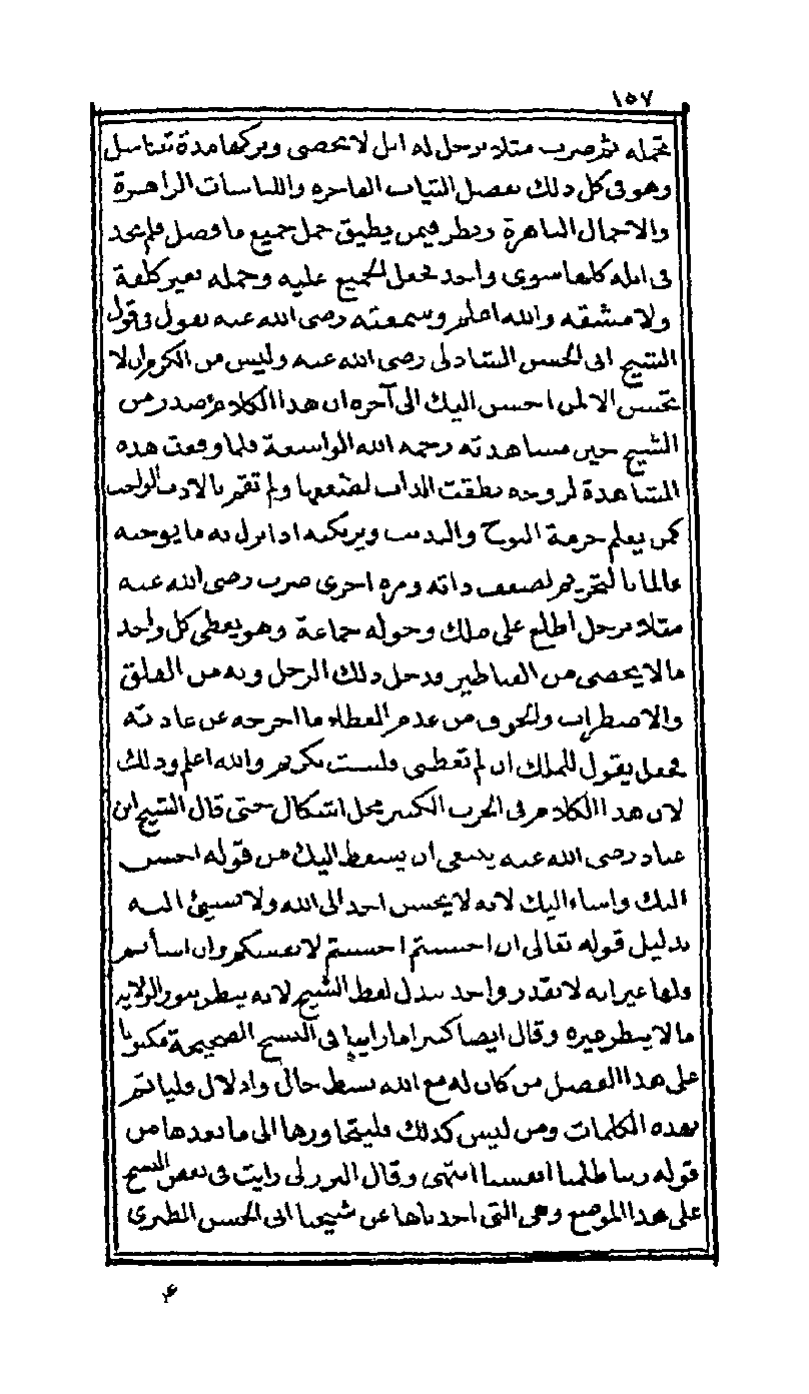 ١٥٧
تحمله ثم ضرب مثلا برجل له ابل لا تحصى وتركها مدة تتناسل
وهو في كل ذلك يفصل الثياب الفاخرة واللباسات الزاهرة
والاحمال الباهرة ونظر فيمن يطيق حمل جميع ما فصل فلم يجد
في ابله كلها سوى واحد فجعل الجميع عليه وحمله بغير كلفة
ولا مشقه والله اعلم وسمعته رضى الله عنه يقول في قول
الشيخ ابى الحسن الشاذلى رضى الله عنه وليس من الكرم ان لا
تحسن الا لمن احسن اليك الى آخره ان هذا الكلام صدر من
الشيخ حين مشاهدته رحمة الله الواسعة فلما وقعت هذه
المشاهدة لروحه نطقت الذات لضعفها ولم تقم بالادب الواجب
كمن يعلم حرمة النوح والندب ويرتكبه اذا نزل به ما يوجبه
عالما بالتحريم لضعف ذاته ومرة اخرى ضرب رضى الله عنه
مثلا برجل اطلع على ملك وحوله جماعة وهو يعطى كل واحد
ما لا يحصى من القناطير فدخل ذلك الرجل وبه من القلق
والاضطراب والخوف من عدم العطاء ما اخرجه عن عادته
فجعل يقول للملك ان لم تعطنى فلست بكريم والله اعلم وذلك
لان هذا الكلام في الحزب الكبير محل اشكال حتى قال الشيخ ابن
عباد رضى الله عنه ينبغى ان يسقط اليك من قوله احسن
اليك واساء اليك لانه لا يحسن احد الى الله ولا يسيئ اليه
بدليل قوله تعالى ان احسنتم احسنتم لانفسكم وان اسأتم
فلها غير انه لا نقدر واحد نبدل لفظ الشيخ لانه ينظر بنور الولاية
ما لا ينظر غيره وقال ايضا كثيرا ما رايت في النسخ الصحيحة مكتوبا
على هذا الفصل من كان له مع الله بسط حال وادلال فليأتم
بهذه الكلمات ومن ليس كذلك فليتجاوزها الى ما بعدها من
قوله ربنا ظلمنا انفسنا انتهى وقال البرزلى رايت في بعض النسخ
على هذا الموضع وهى التى اخذناها عن شيخنا ابى الحسن الطبرى